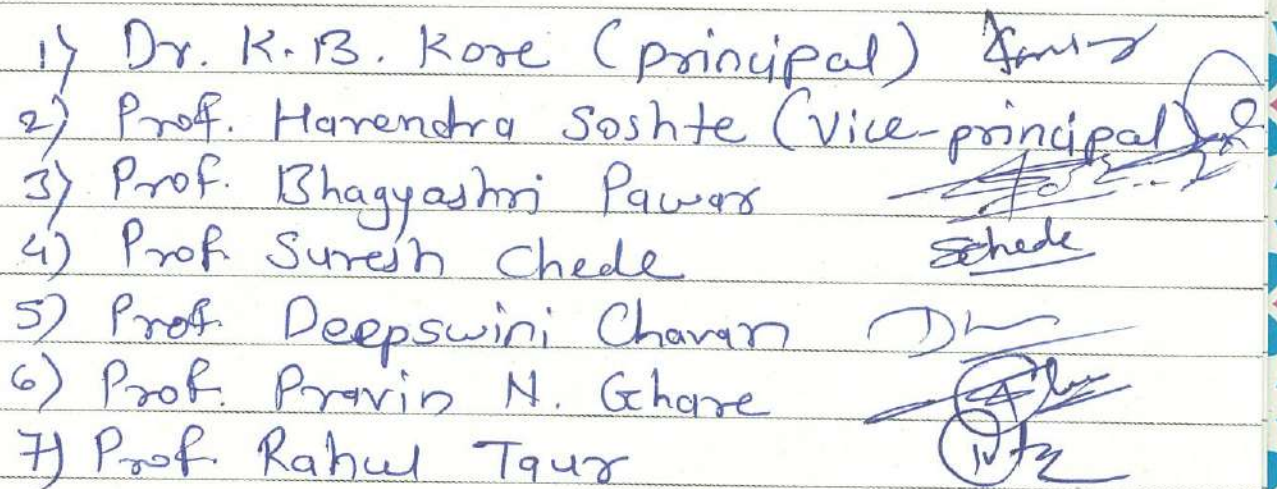 1) Dr. K. B. Kore (principal)
2) Prof. Harendra Soshte (Vice-principal)
3) Prof. Bhagyashri Pawar
4) Prof. Suresh Chede Schede
5) Prof. Deepswini Chavan
6) Prof. Pravin N. Ghare
7) Prof. Rahul Taur